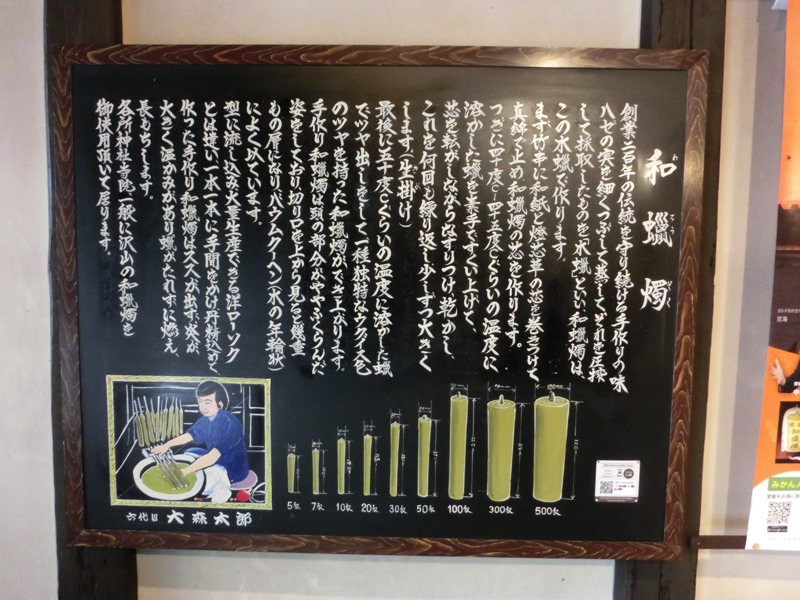 和蠟燭
わろうそく
創業二百年の伝統を守り続ける手作りの味
ハゼの実を細くつぶして蒸してそれを圧搾
して採取したものを木蠟といい和蠟燭は、
この木蠟で作ります。
まず竹串に和紙と燈芯草の芯を巻きつけて
真綿で止め和蠟燭の芯を作ります。
つぎに四十度C〜四十五度Cぐらいの温度に
溶かした蠟を素手ですくい上げて、
芯を転がしながらなすりつけ、乾かし、
これを何回も繰り返し少しずつ大きく
します。(生掛け)
最後に五十度Cぐらいの温度に溶かした蠟
でツヤ出しをして一種独特なウグイス色
のツヤを持った和蠟燭ができ上がります。
手作り和蠟燭は頭の部分がややふくらんだ
姿をしており切り口を上から見ると幾重
もの層になりバウムクーヘン(木の年輪状)
によく似ています。
型に流し込み大量生産できる洋ローソク
とは違い一本一本に手間をかけ丹精込めて
作った手作り和蠟燭はススが出ず、炎が、
大きく温かみがあり蠟がたれずに燃え、
長もちします。
各所神社寺院一般に沢山の和蠟燭を
御使用頂いて居ります。
5匁
7匁
10匁
20匁
30匁
50匁
100匁
300匁
500匁
六代目 大森太郎
みかん